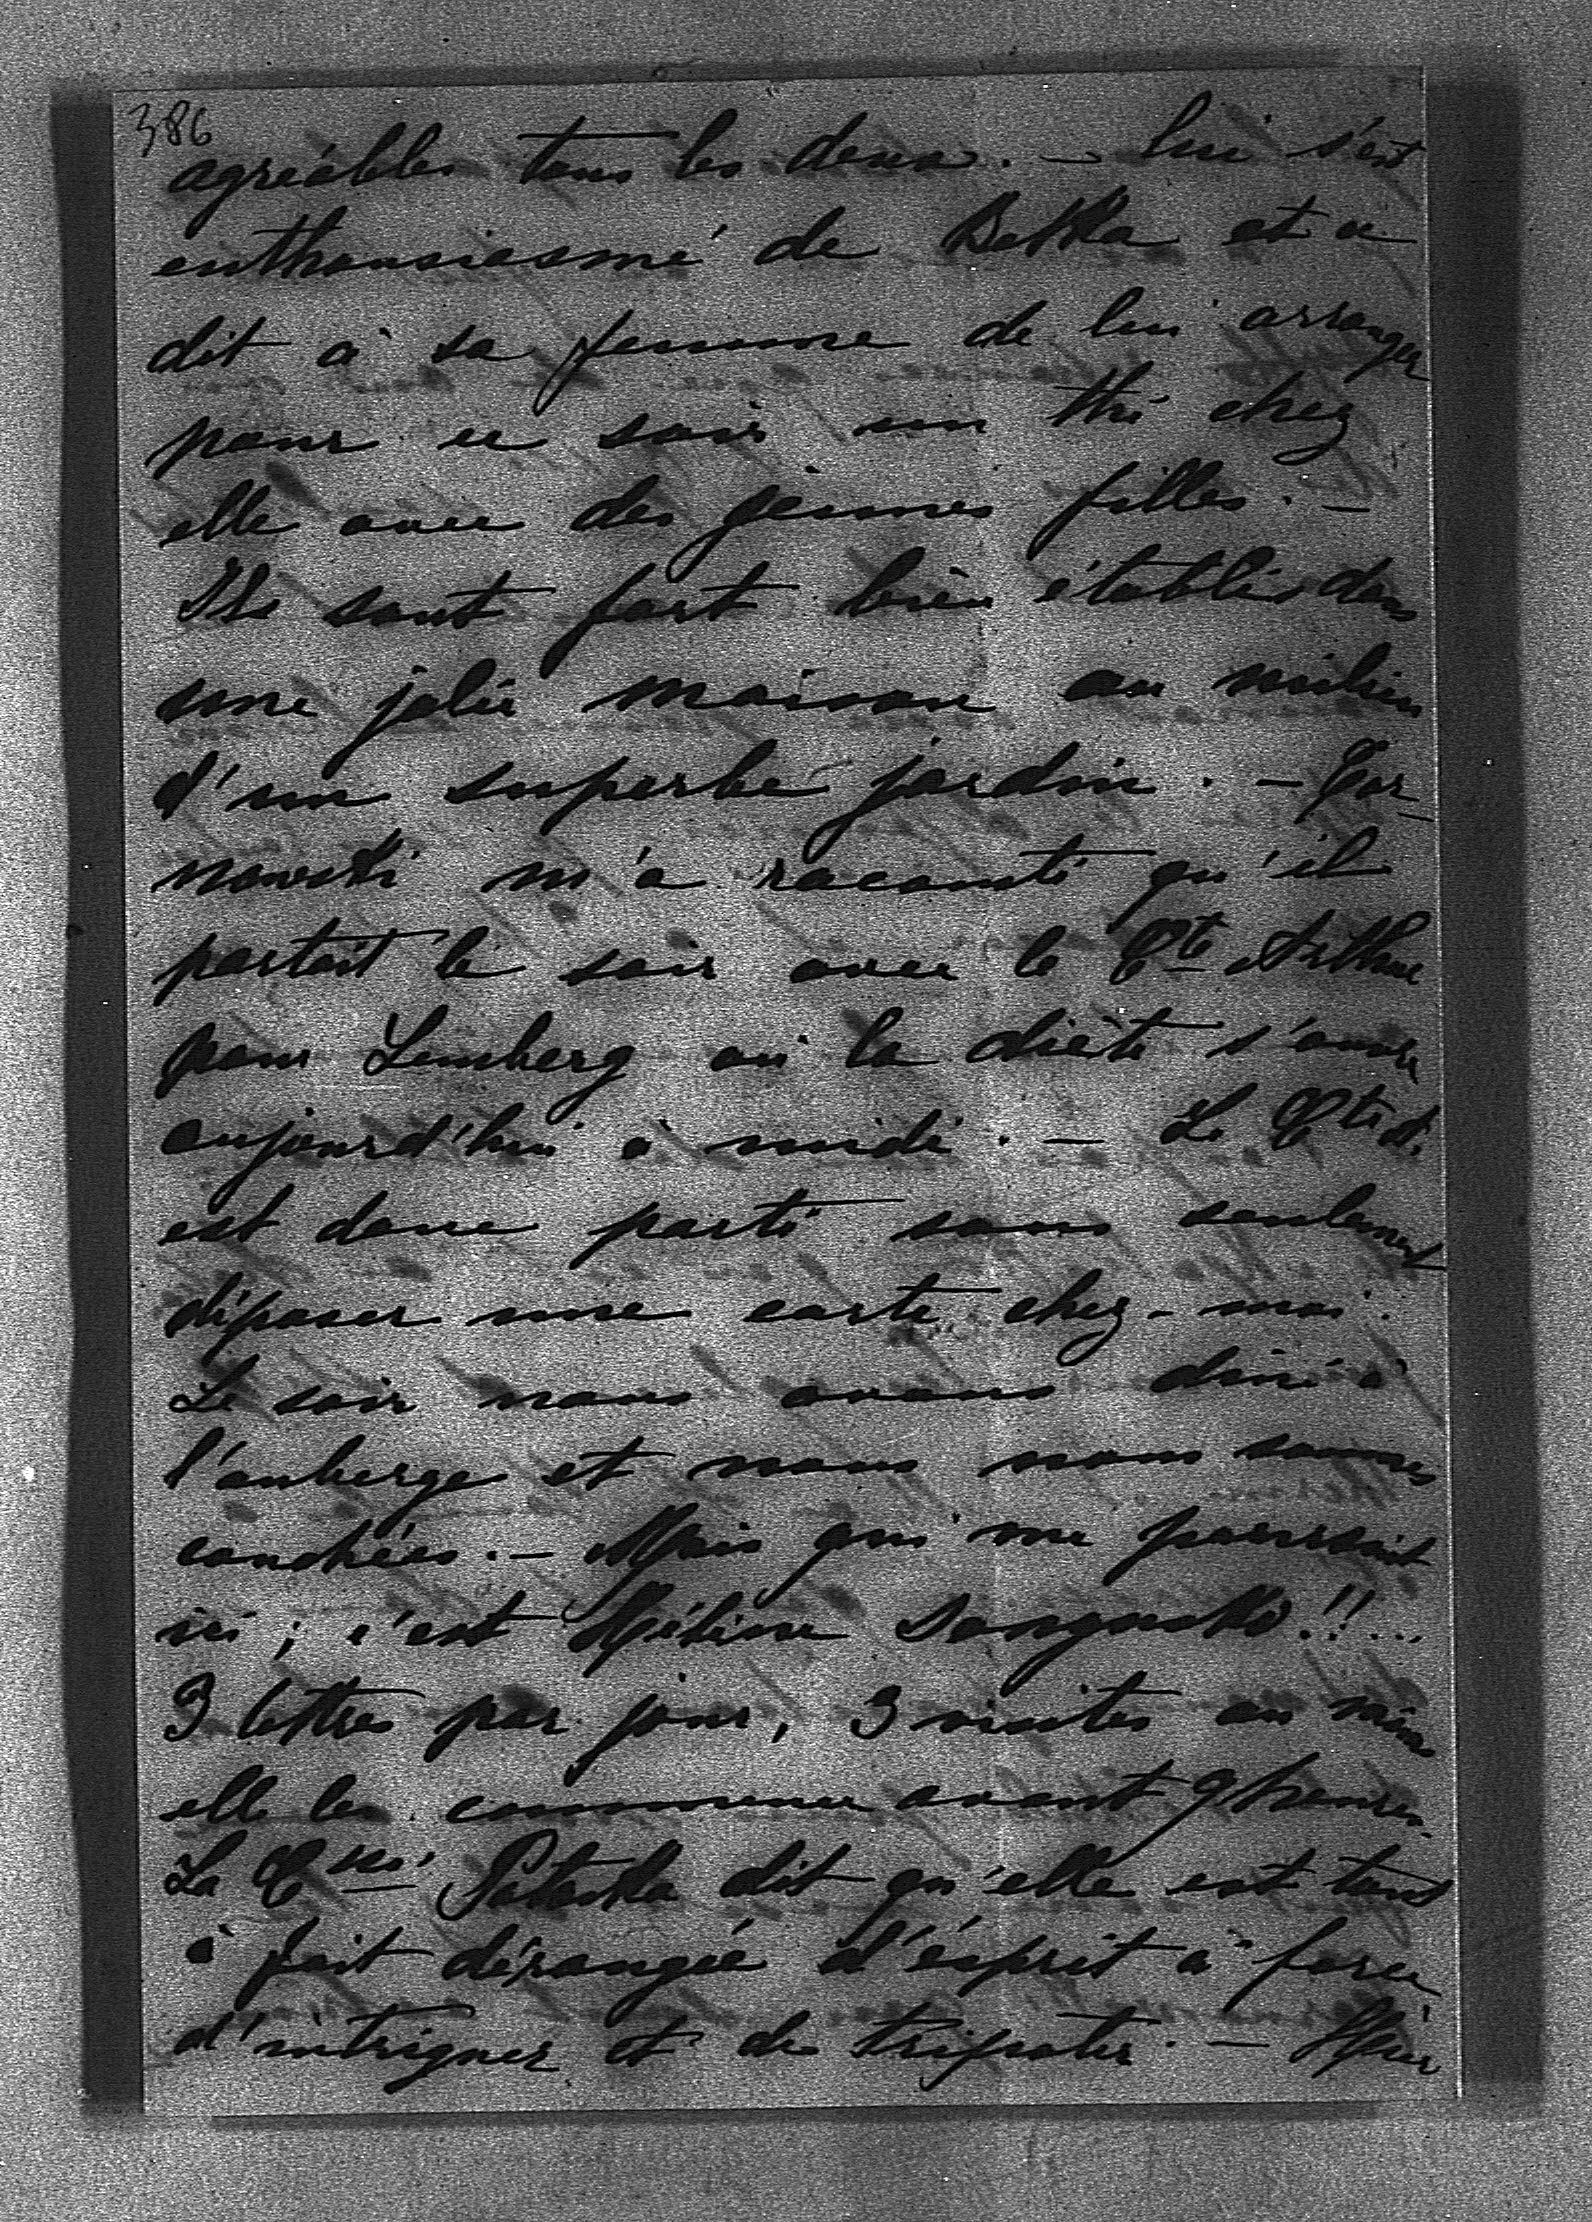 386
agréables tous les deux. – lui s'est
enthousiasmé de Betka et a
dit à sa femme de lui arranger
pour ce soir un thé chez
elle avec des jeunes filles. –
Ils sont fort bien établis dans
une jolie maison au milieu
d'un superbe jardin. – Tar-
nowski m'a raconté qu'il
partait le soir avec le Cte Arthur
pour Lemberg où la diète s'ouvre
aujourd'hui à midi. – Le Cte A.
est donc parti sans seulement
déposer une carte chez-moi.
Le soir nous avons diné à
l'auberge et nous nous sommes
couchées. – Mais qui me poursuit
ici, c'est Hélène Sanguszko!!...
3 lettres par jour, 3 visites au moins
elle les commence avant 9 heures.
La Ctesse Potocka dit qu'elle est tout
à fait dérangée d'ésprit à force
d'intriguer et de tripoter. – Hier